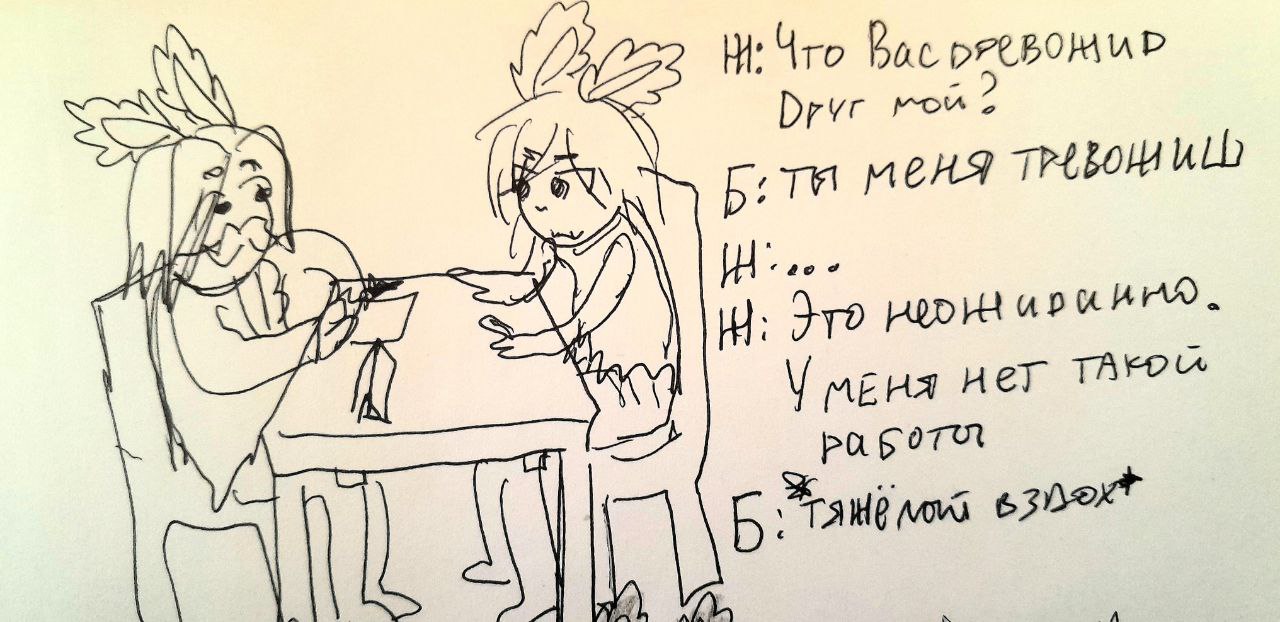 Ж: Что Вас древожид
друг мой?
Б: ты меня тревожиш
Ж: ...
Ж: Это неожиданно.
У меня нет такой
работы
Б: *тяжёлой вздох*